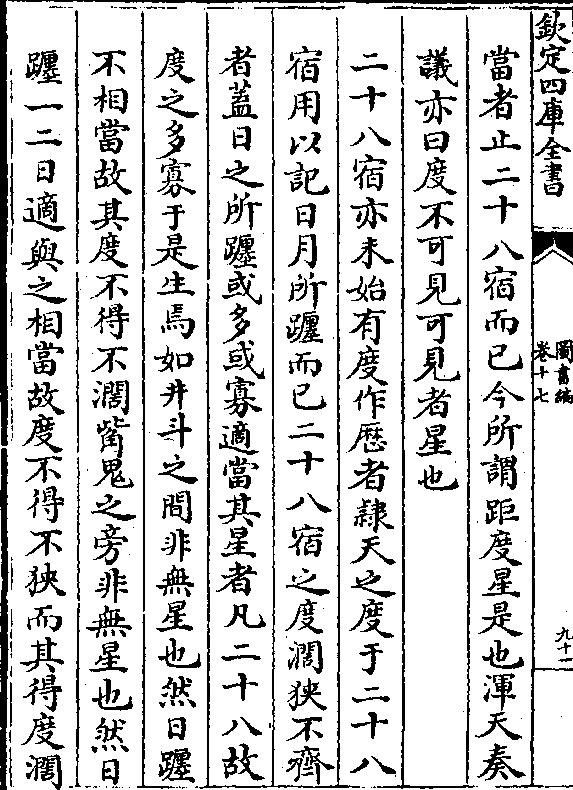 欽定四庫全書
圖書編
卷十七
九十一
當者止二十八宿而已今所謂距度星是也渾天奏
議亦曰度不可見可見者星也
二十八宿亦未始有度作厯者隷天之度于二十八
宿用以記日月所躔而已二十八宿之度濶狹不齊
者蓋日之所躔或多或寡適當其星者凡二十八故
度之多寡于是生焉如井斗之間非無星也然日躔
不相當故其度不得不濶觜鬼之旁非無星也然日
躔一二日適與之相當故度不得不狹而其得度濶